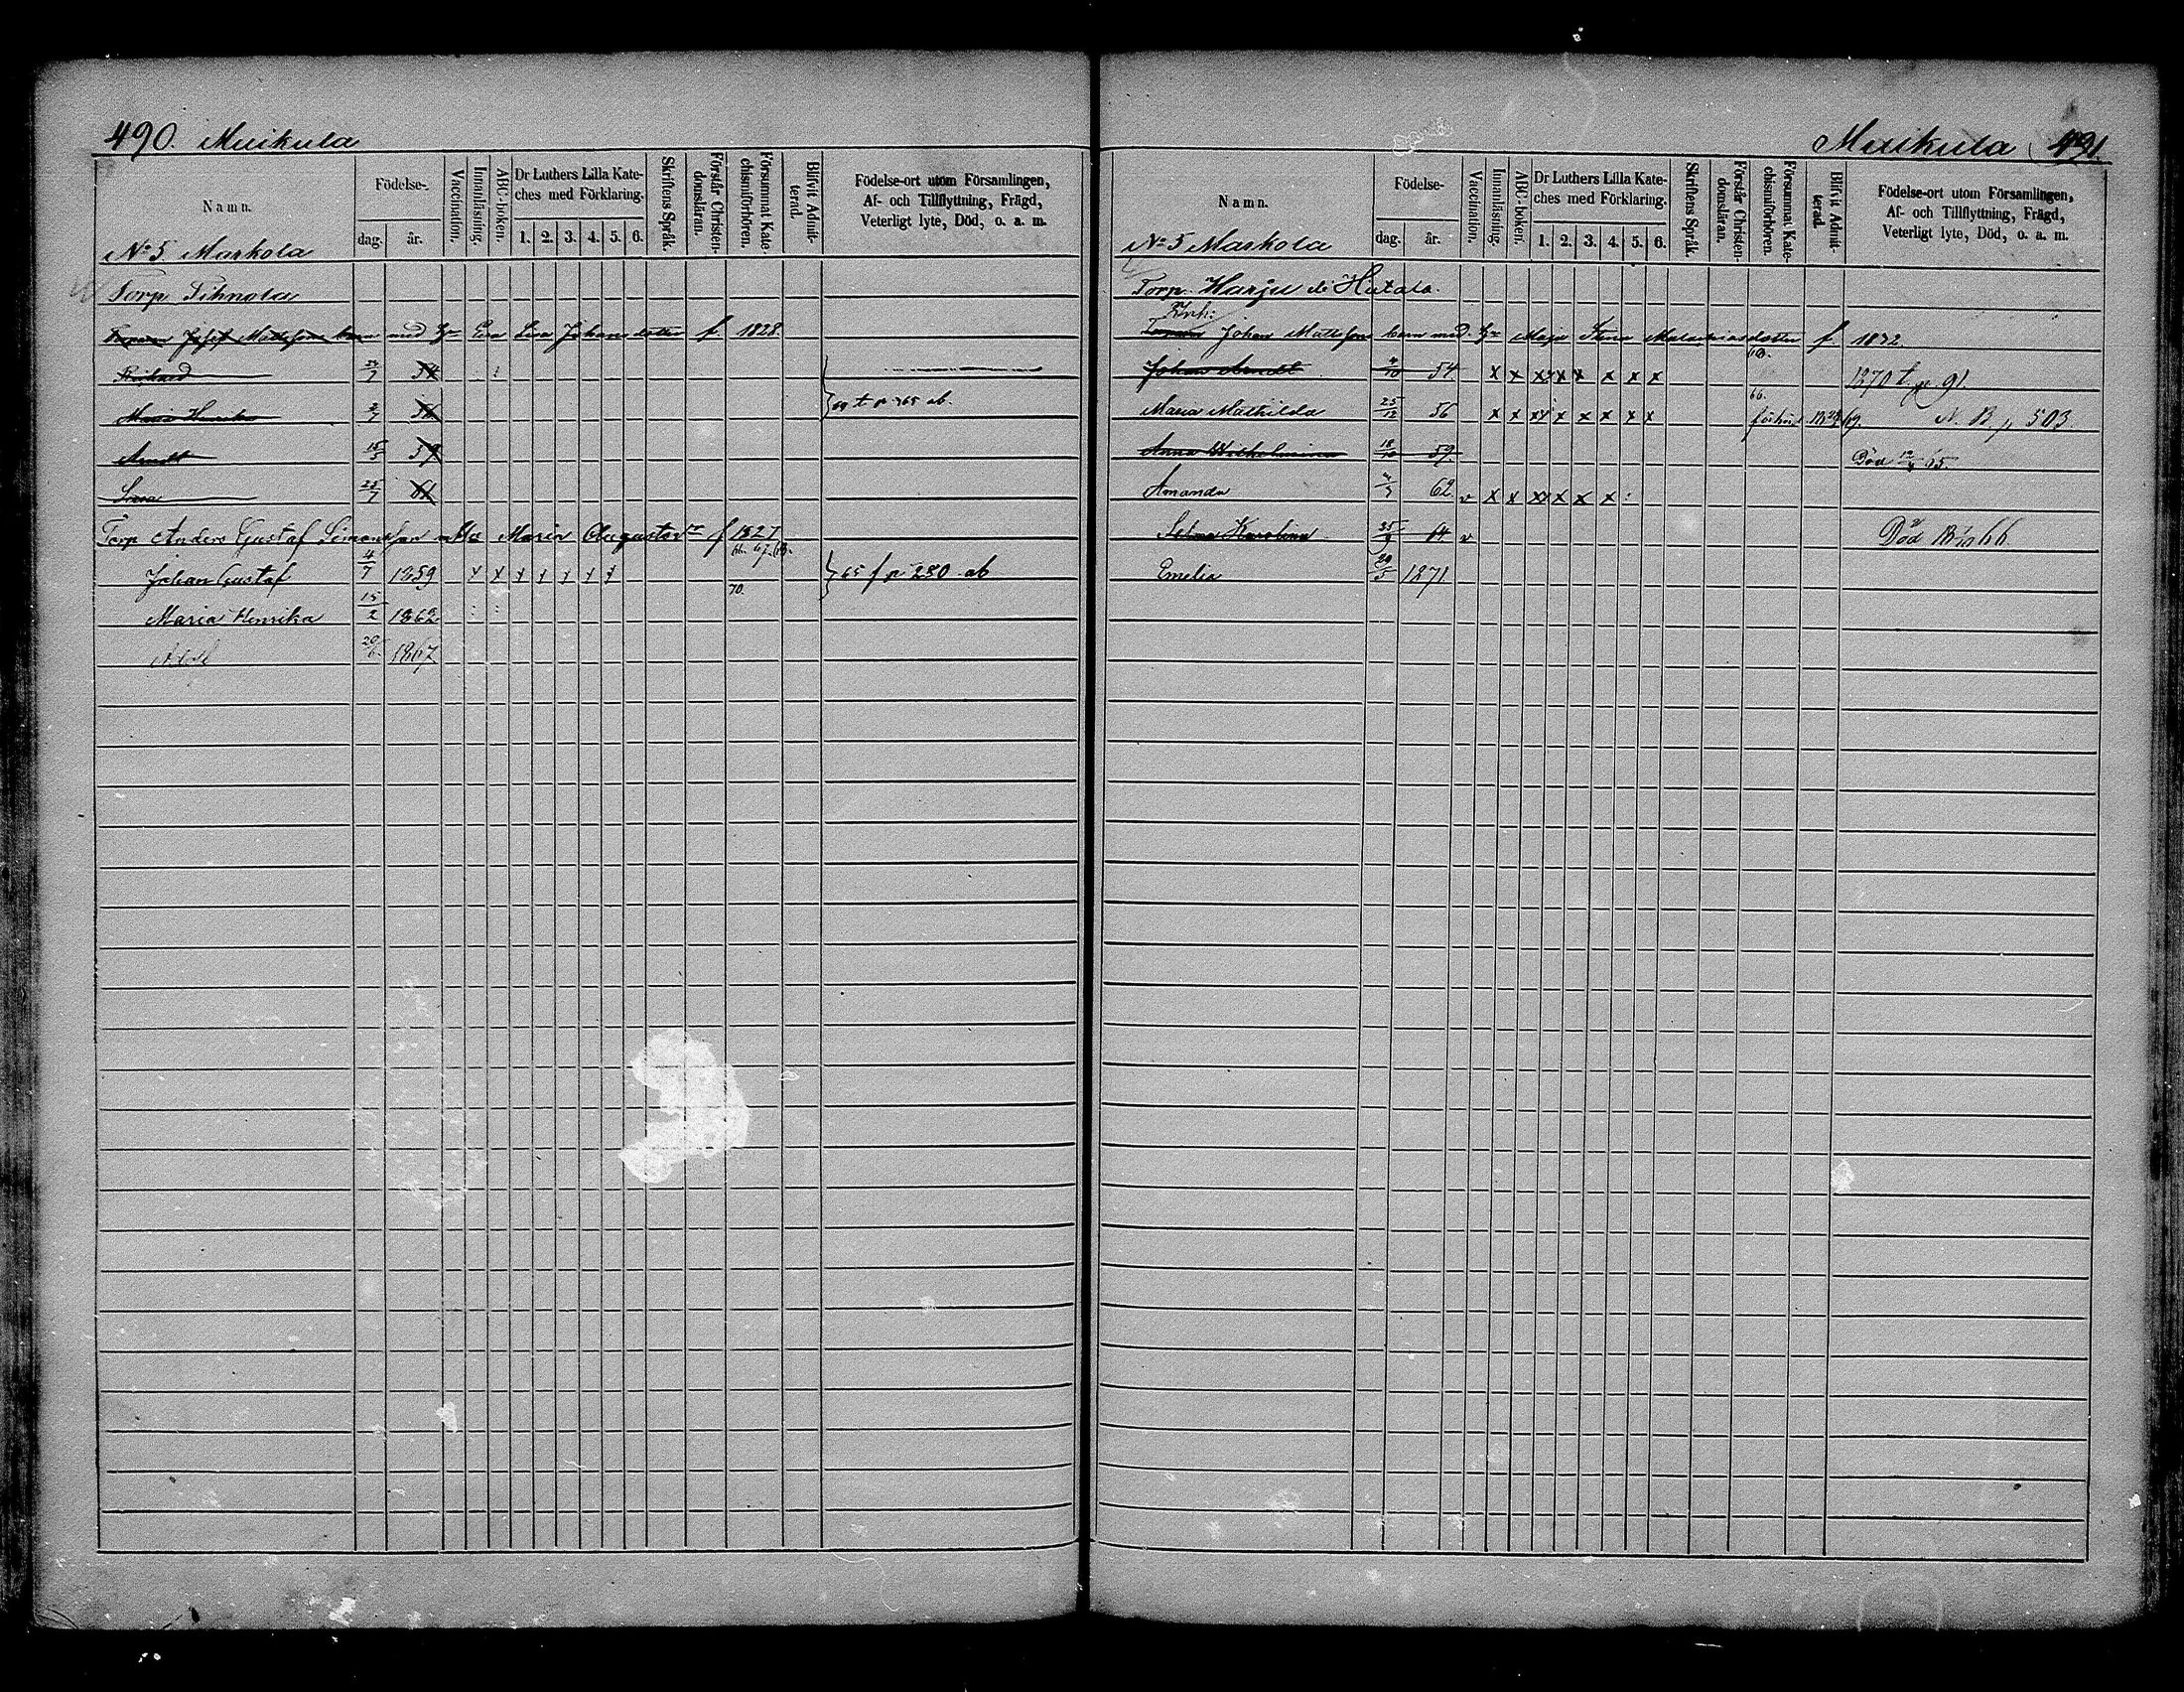 490. Muikula
Namn.
Födelse-
dag.
år.
Vaccination.
Innanläsning.
ABC-boken.
Dr Luthers Lilla Kate-
ches med Förklaring.
1. 2. 3. 4. 5. 6.
Skriftens Språk.
Förstår Christen-
domsläran.
Försummat Kate-
chismiförhören.
Blifvit Admit-
terad.
Födelse-ort utom Församlingen,
Af- och Tillflyttning, Frägd,
Veterligt lyte, Död, o. a. m.
No 5 Maskola
Torp Tihnola
Josef Mattsson barn med Hu Eva Lisa Johansdotter f 1828
Rickard 7 54
Maria Henrika 2/7 56
69 t p 365 ab.
Arndt 15/5 59
25/7 61
Torp Anders Gustaf Simonsson Maria Augustasdr f 1827
66. 67. 68.
Johan Gustaf 4/7 1859 x x x x x x x 70. 65 f p 230 ab
Maria Henrika 15/2 1862
20/6 1867
Muikula 491.
Namn.
Födelse-
dag.
år.
Vaccination.
Innanläsning.
ABC-boken.
Dr Luthers Lilla Kate-
ches med Förklaring.
1. 2. 3. 4. 5. 6.
Skriftens Språk.
Förstår Christen-
domsläran.
Försummat Kate-
chismiförhören.
Blifvit Admit-
terad.
Födelse-ort utom Församlingen,
Af- och Tillflyttning, Frägd,
Veterligt lyte, Död, o. a. m.
No 5 Maskola
Torp. Harju
Inh:
Johan Mattsson barn med Hu Maja Stina Malakiasdotter f 1832.
Johan Arndt 4/10 54 x x xx x x x x 63. 1870 t. p. 91
Maria Mathilda 25/12 56 x x xx x x x x x 66. N. B. p 503.
Anna Wilhelmina 18/10 59. Död 12/4 65.
Amanda 7/7 62 v x x xx x x x :
Selma Karolina 25/9 64 v Död 18 2/10 66
Emelia 29/5 1871